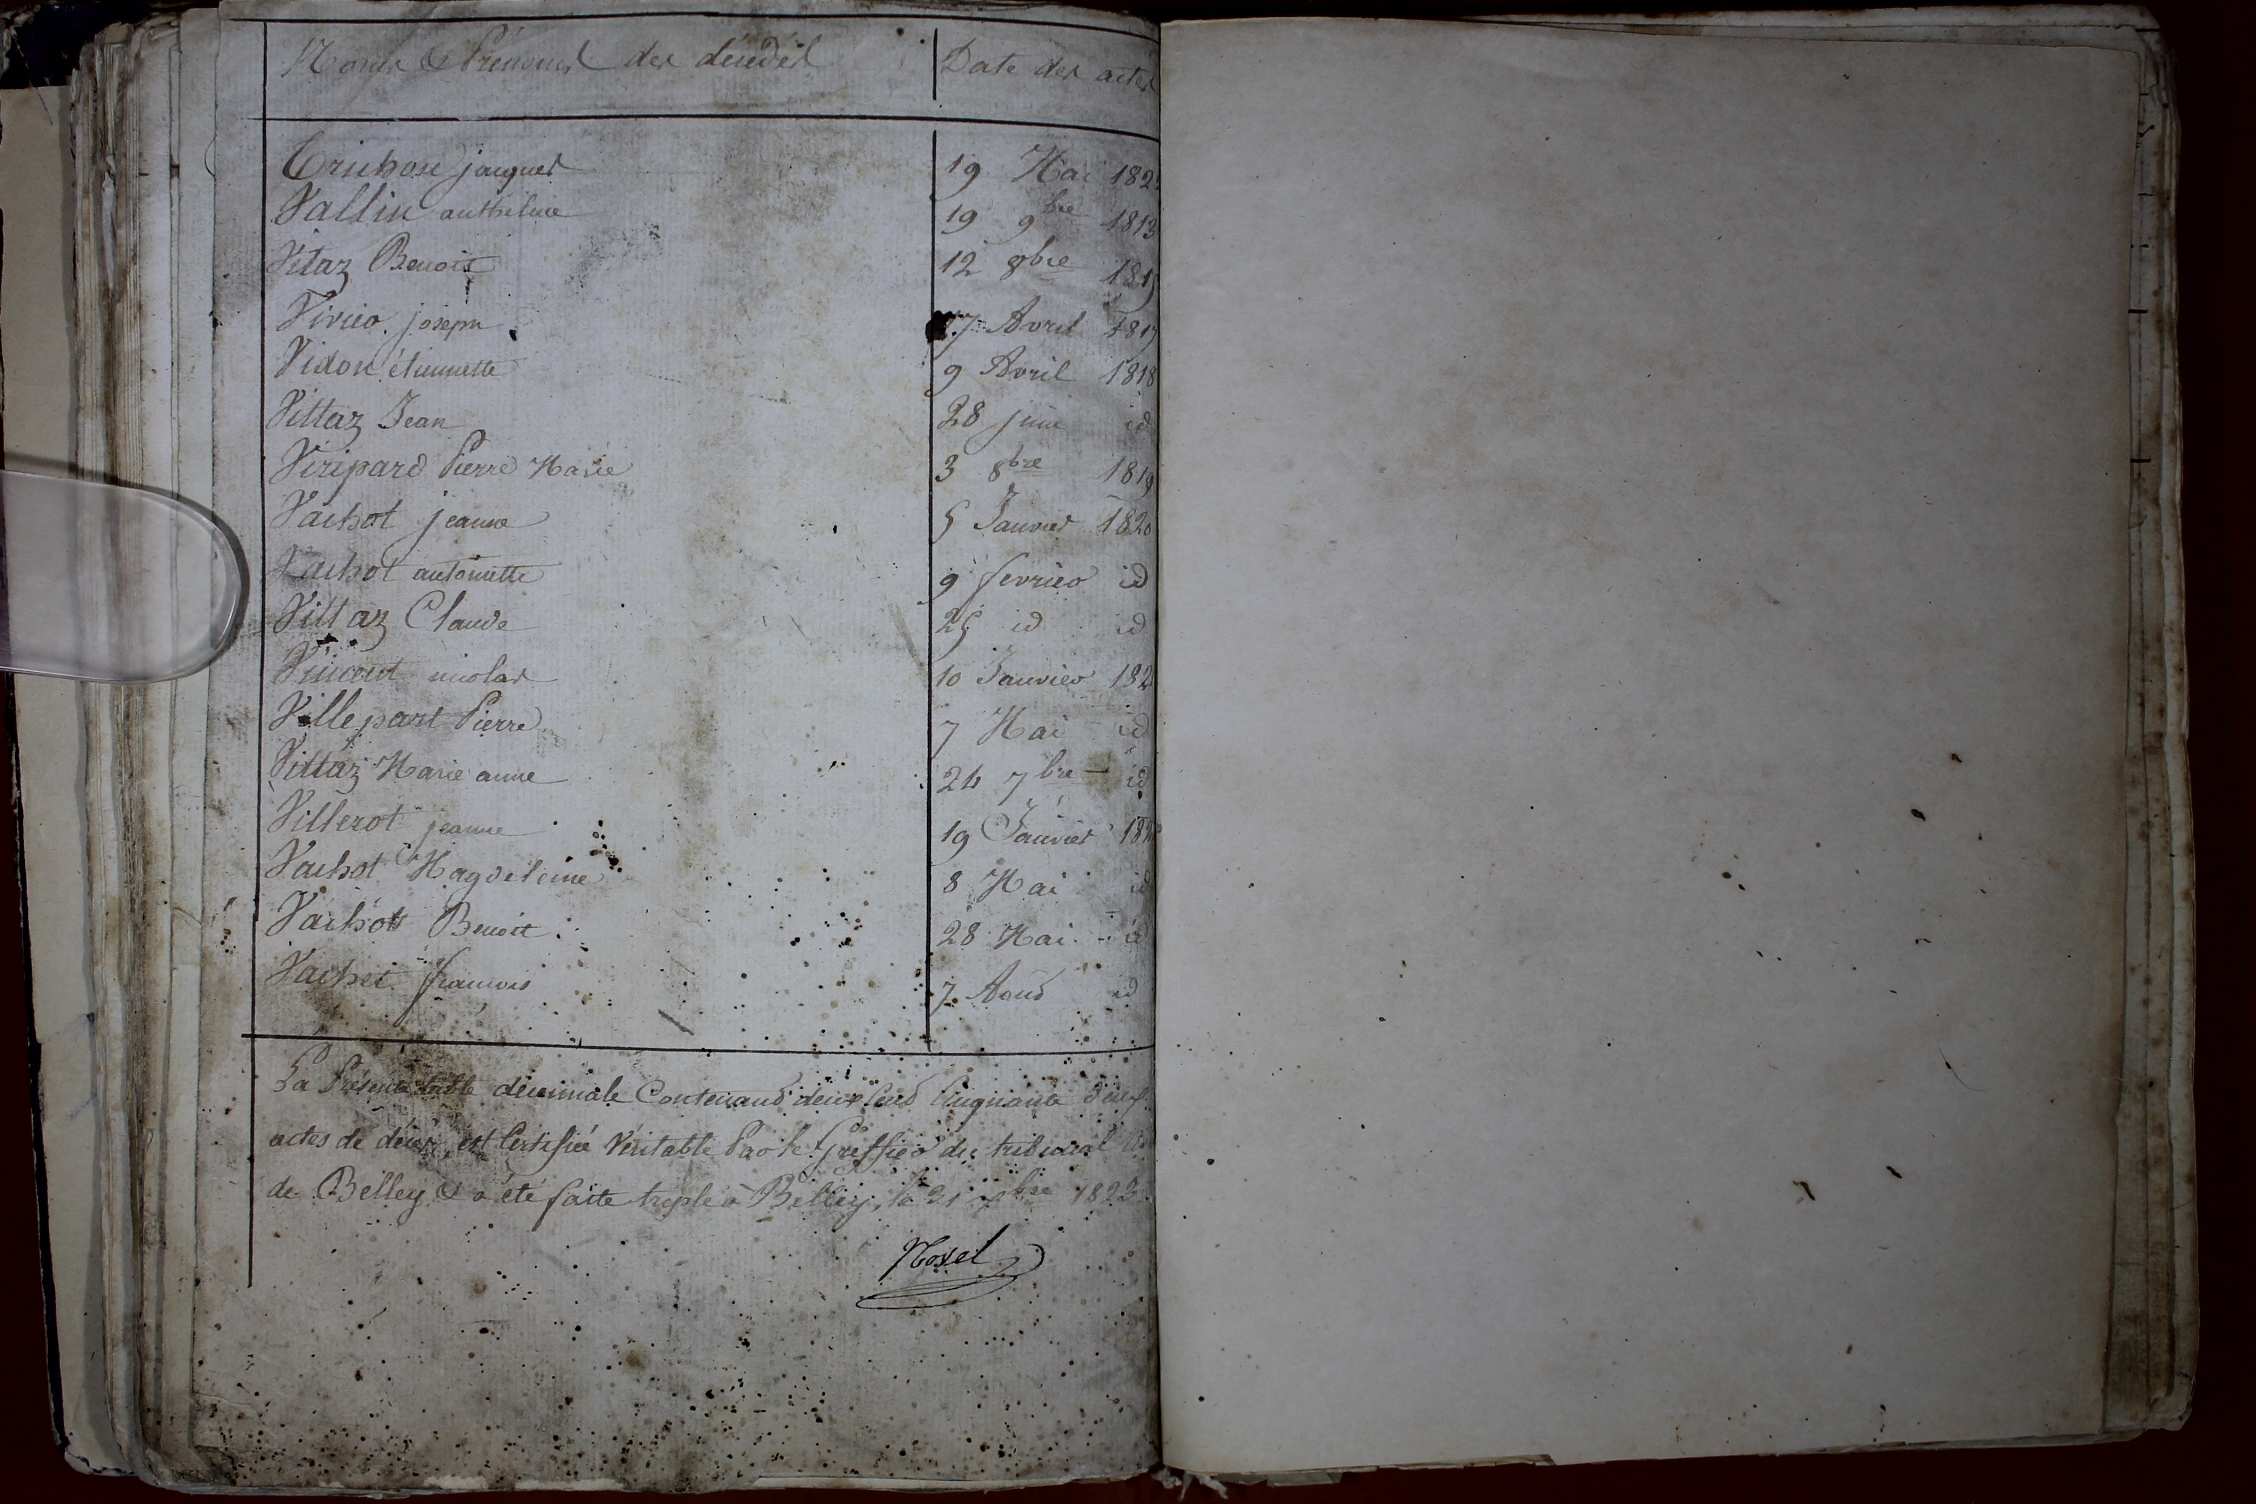 Noms & Prénoms des décédés Date des actes
Trichon jacques 19 Mai 182
Vallin anthelme 19 9bre 1813
Vitaz Benoit 12 8bre 1815
Vivier joseph 17 Avril 1817
Vidon étiennette 9 Avril 1818
Vittaz Jean 28 juin id
Viripard Pierre Marie 3 8bre 1819
Vachot jeanne 5 Janvier 1820
Vachot antoinette 9 fevrier id
Vittaz Claude 25 id id
Vincent nicolas 10 Janvier 182
Villepart Pierre 7 Mai id
Vittaz Marie anne 24 7bre id
Villerot jeanne 19 Janvier 182
Vachot Magdeleine 8 Mai id
Vachot Benoit 28 Mai id
Vachet francois 7 Aoud id
La Présente table décennale Contenand deux Cend Cinquante deux
actes de décès, est Certifiée Véritable Par le Greffier du tribunal
de Belley & a été faite triple à Belley, le 31 bre 1823